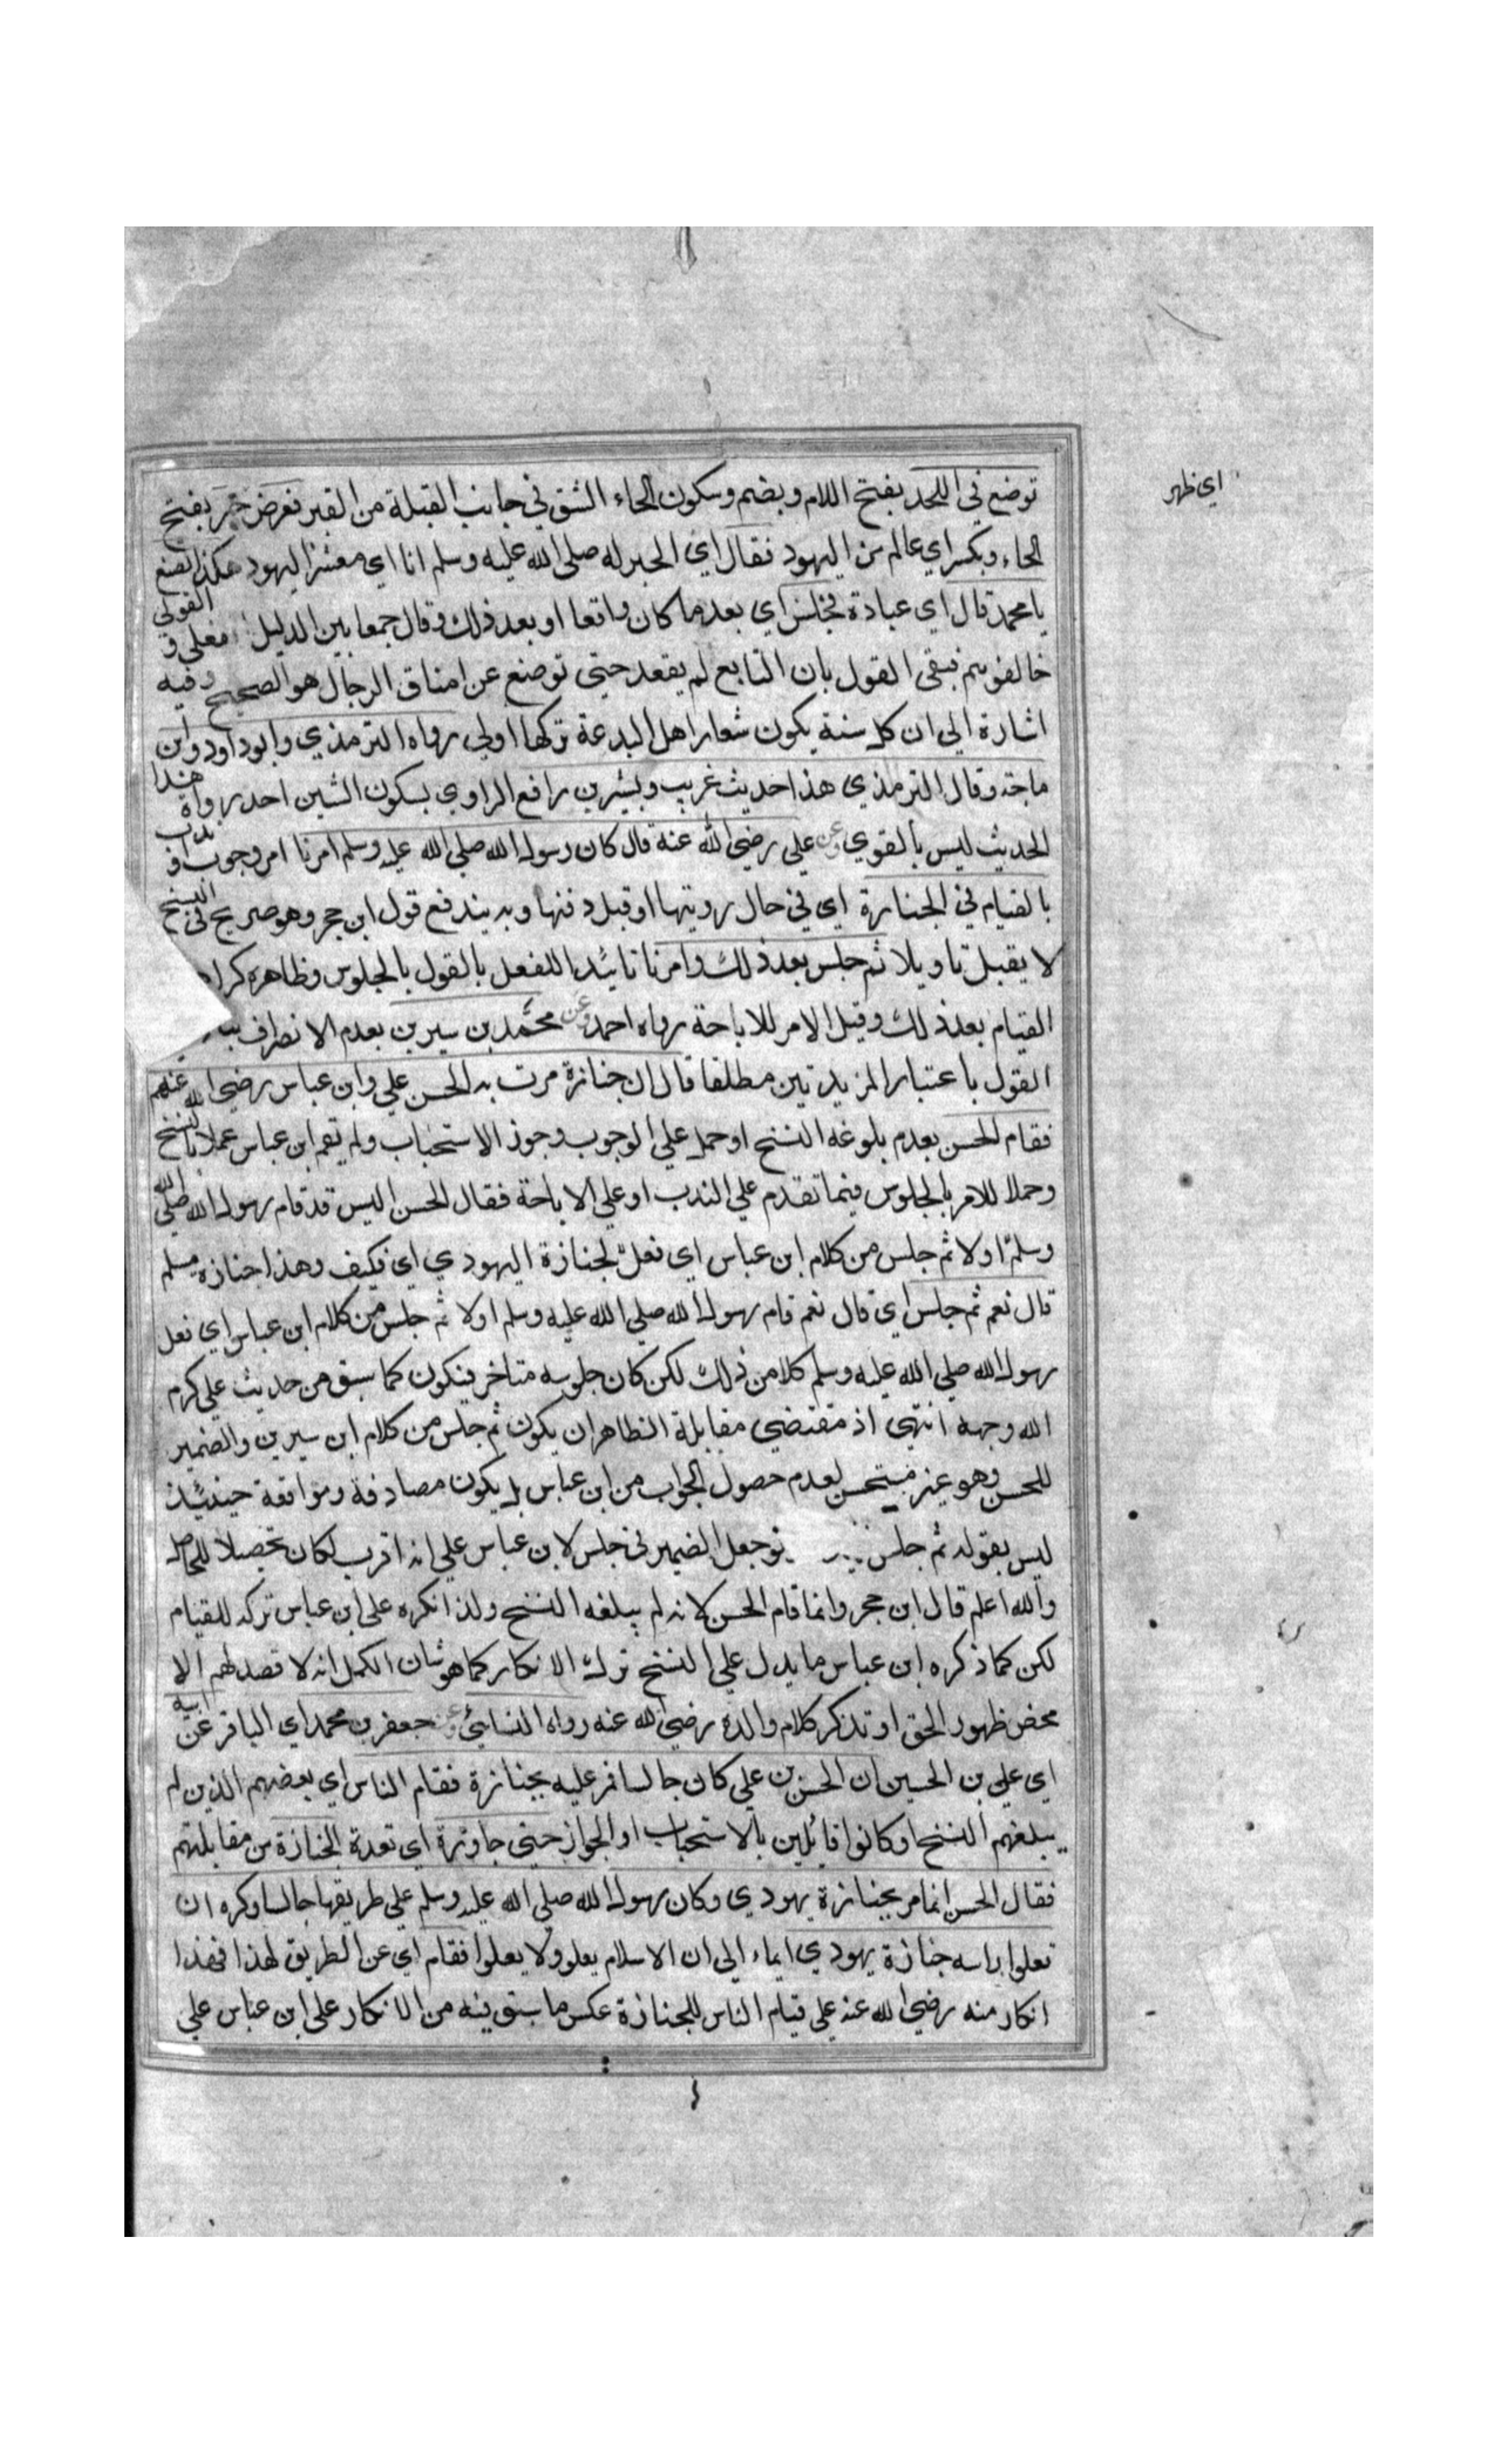 توضع في اللحد بفتح اللام وبضم وسكون الحاء الشق في جانب القبلة من القبر فعرض حبر بفتح
اي ظهر
الحاء وبكسر اي عالم من اليهود فقال اي الحبر له صلى الله عليه وسلم انا اي معشر اليهود هكذا نصنع
يا محمد قال اي عبادة فجلس اي بعد ما كان واقعا او بعد ذلك وقال جمعا بين الدليل الفعلي والقولي
خالفوهم فبقى القول بان التابع لم يقعد حتى توضع عن اعناق الرجال هو الصحيح وفيه
اشارة الى ان كل سنة يكون شعار اهل البدعة تركها اولى رواه الترمذي وابو داود وابن
ماجة وقال الترمذي هذا حديث غريب وبشر بن رافع الراوي بسكون الشين احد رواة هذا
الحديث ليس بالقوي وعن علي رضي الله عنه قال كان رسول الله صلى الله عليه وسلم امرنا امر وجوب او ندب
بالقيام في الجنازة اي في حال رويتها او قبل دفنها وبه يندفع قول ابن حجر وهو صريح في النسخ
لا يقبل تاويلا ثم جلس بعد ذلك وامرنا تائيدا للفعل بالقول بالجلوس وظاهره
القيام بعد ذلك وقيل الامر للاباحة رواه احمد وعن محمد بن سيرين بعدم الانصراف
القول باعتبار المزيدتين مطلقا قال ان جنازة مرت به الحسن علي وابن عباس رضي الله عنهم
فقام الحسن بعدم بلوغه النسخ او حمل على الوجوب وجوز الاستحباب ولم يقم ابن عباس عملا بالنسخ
وحملا للامر بالجلوس فيما تقدم على الندب او على الاباحة فقال الحسن اليس قد قام رسول الله صلى الله
وسلم اولا ثم جلس من كلام ابن عباس اي فعل لجنازة اليهودي اي فكيف وهذا جنازة مسلم
قال نعم ثم جلس اي قال نعم قام رسول الله صلى الله عليه وسلم اولا ثم جلس من كلام ابن عباس اي فعل
رسول الله صلى الله عليه وسلم كلا من ذلك لكن كان جلوسه متاخر فيكون كما سبق من حديث علي كرم
الله وجهه انتهى اذ مقتضي مقابلة الظاهر ان يكون ثم جلس من كلام ابن سيرين والضمير
للحسن وهو غير مستحسن لعدم حصول الجواب من ابن عباس بل يكون مصادفة وموافقة حينئذ
ليس بقوله ثم جلس لوجعل الضمير في جلس لابن عباس على انه اقرب لكان تحصيلا للحاصل
والله اعلم قال ابن حجر وانما قام الحسن لانه لم يبلغه النسخ ولذا انكره على ابن عباس تركه للقيام
لكن كما ذكره ابن عباس ما يدل على النسخ ترك الانكار كما هو شان الكمل انه لا قصد لهم الا
محض ظهور الحق او تذكر كلام والده رضي الله عنه رواه النسائي وعن جعفر بن محمد اي الباقر عن ابيه
اي علي بن الحسين ان الحسن بن علي كان جالسا فمر عليه بجنازة فقام الناس اي بعضهم الذين لم
يبلغهم النسخ او كانوا قائلين بالاستحباب او الجواز حتى جاوزة اي تعدة الجنازة من مقابلتهم
فقال الحسن انما مر بجنازة يهودي وكان رسول الله صلى الله عليه وسلم على طريقها جالسا وكره ان
تعلوا براسه جنازة يهودي ايماء الى ان الاسلام يعلو ولا يعلوا فقام اي عن الطريق لهذا فهذا
انكار منه رضي الله عنه على قيام الناس للجنازة عكس ما سبق منه من الانكار على ابن عباس على